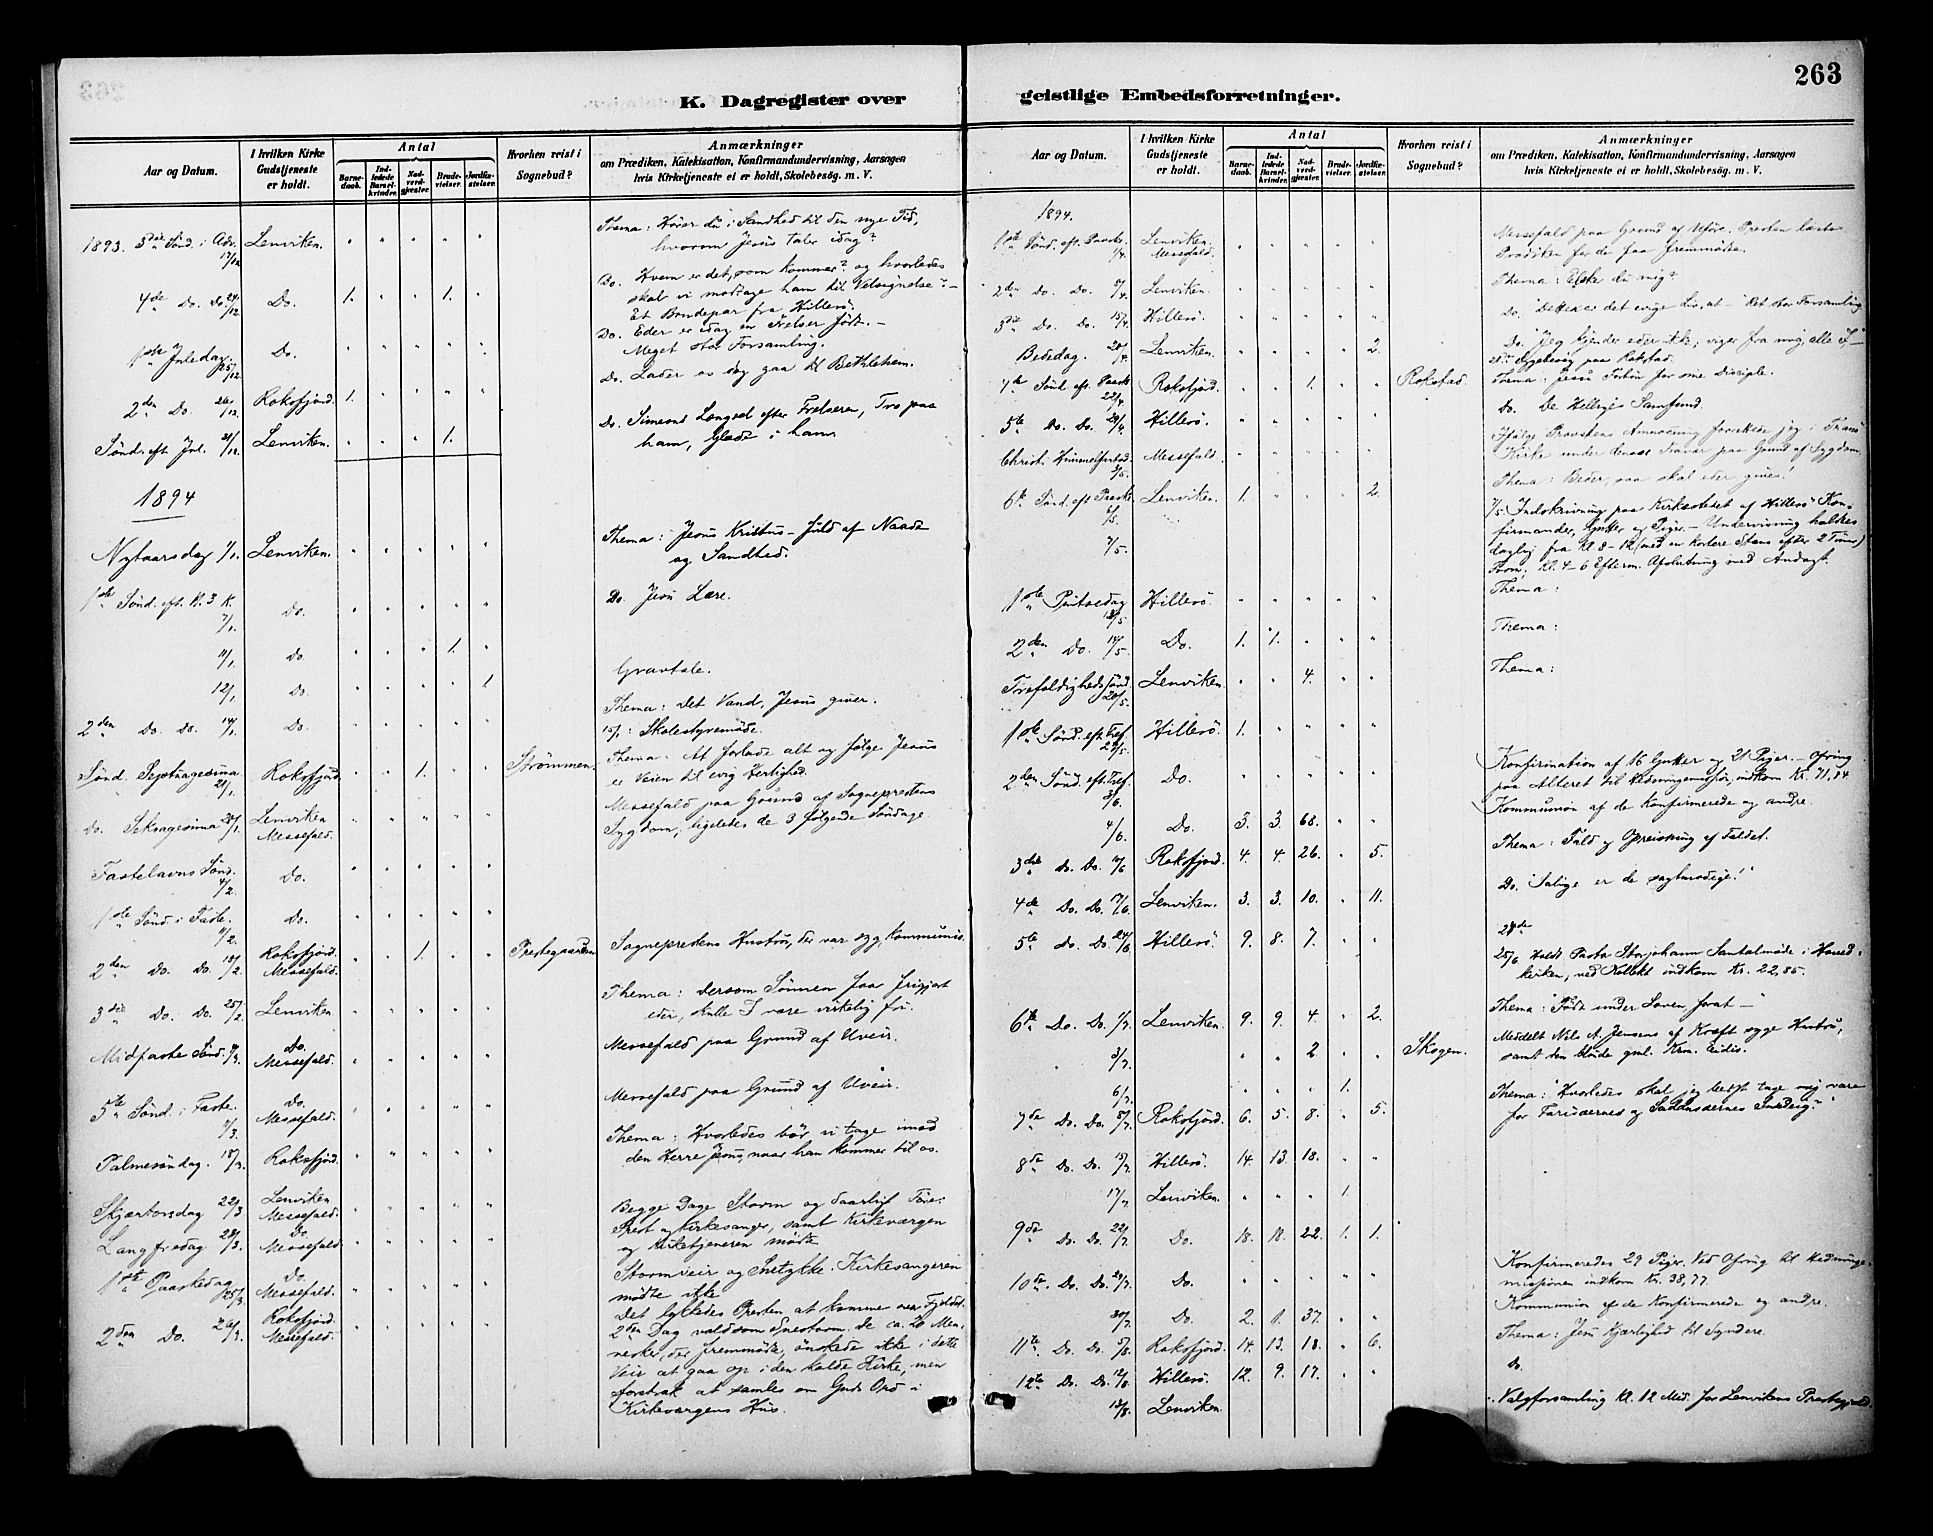 263
K. Dagregister over
geistlige Embedsforretninger.
Aar og Datum.
I hvilken Kirke Gudstjeneste er holdt.
Antal
Barne-daab.
Ind-ledede Barsel-kvinder.
Nad-verd-gjester.
Brude-vielser.
Jordfæ-stelser.
Hvorhen reist i Sognebud?
Anmærkninger
om Prædiken, Katekisation, Konfirmandundervisning, Aarsagen
hvis Kirketjeneste ei er holdt, Skolebesøg. m. V.
1893. 3die Sönd. i Adv. 17/12 Lenviken. " " " " " Thema: Hörer du i Sandhed til den nye Tid,
hvorom Jesus taler idag?
4de Do. Do. 24/12 Do. 1. " " 1. " Do. Hvem er det, som kommer? og hvorledes
skal vi modtage ham til Velsignelse? –
Et Brudepar fra Hillesö.
1ste Juledag. 25/12 Do. " " " " " Do. Eder er idag en Frelser født. –
Meget stor Forsamling.
2den Do. 26/12 Roksfjord. 1. " " " " Do. Lader os dog gaa til Bethlehem.
Sönd. eft. Jul. 31/12 Lenviken. " " " 1. Do. Simeons Længsel efter Frelseren, Tro paa
ham, Glæde i ham.
1894
Nytaarsdag 1/1. Lenviken. " " " " " Thema: Jesus Kristus – fuld af Naade
og Sandhed.
1ste Sönd. eft. H. 3 K. 7/1. Do. " " " " " Do. Jesu Lære.
11/1. Do. " " " 1. "
12/1. Do. " " " " 1 Gravtale.
2den Do. Do. 14/1. Do. " " " " " Thema: Det Vand, Jesus giver.
15/1: Skolestyremöde.
Sönd. Septuagesima 21/1. Roksfjord. " " 1. " " Strömmen. Thema: At forlade alt og følge Jesus
er Veien til evig Herlighed.
Do. Seksagesima 28/1. Lenviken Messefald. " " " " " Messefald paa Grund af Sogneprestens
Sygdom, ligeledes de 3 følgende Söndage.
Fastelavns Sönd. 4/2. Do. " " " " "
1ste Sönd. i Faste. 11/2. Do. " " " " "
2den Do. Do. 18/2. Roksfjord. Messefald. " " 1. " " Prestegaarden. Sogneprestens Hustru, der var syg, kommunic.
3die Do. Do. 25/2. Lenviken " " " " " Thema: Dersom Sönnen faar frigjort
eder, skulle I være virkelig fri.
Midfaste Sönd. 4/3. Do. Messefald. " " " " " Messefald paa Grund af Uveir.
5te Sönd. i Faste. 11/3. Do. Messefald. " " " " " Messefald paa Grund af Uveir.
Palmesöndag. 18/3. Roksfjord. " " " " " Thema: Hvorledes bör vi tage imod
den Herre Jesus, naar han kommer til os.
Skjærtorsdag 22/3 Lenviken Messefald. " " " " " Begge Dage Storm og daarligt Føre.
Langfredag 23/3. Do. Messefald. " " " " " Prest og Kirkesanger, samt Kirkeværgen
og Kirketjeneren mødte
1ste Paaskedag 25/3. Do. Messefald. " " " " " Stormveir og Snetykke. Kirkesangeren
mødte ikke
2den Do. 26/3. Roksfjord. Messefald. " " " " " Det lykkedes Presten at komme over Fjeldet
2den Dag voldsom Snestorm. De ca. 20 Men-
nesker, der fremmødte, ønskede ikke i dette
Veir at gaa op i den kolde Kirke, men
foretrak at samles om Guds Ord i
Kirkeværgens Hus.
Aar og Datum.
I hvilken Kirke Gudstjeneste er holdt.
Antal
Barne-daab.
Ind-ledede Barsel-kvinder.
Nad-verd-gjester.
Brude-vielser.
Jordfæ-stelser.
Hvorhen reist i Sognebud?
Anmærkninger
om Prædiken, Katekisation, Konfirmandundervisning, Aarsagen
hvis Kirketjeneste ei er holdt, Skolebesøg. m. V.
1894.
1ste Sönd. eft. Paaske. 1/4. Lenviken. Messefald. " " " " " Messefald paa Grund af Uföre. Presten læste
Prædiken for de faa fremmødte.
2den Do. Do. 8/4. Lenviken. " " " " " Thema: Elsker du mig?
3die Do. Do. 15/4. Hillesö. " " " " " Do. Dette er det evige Liv, at – Ret stor Forsamling
Bededag. 20/4. Lenviken. " " " " 2. Do. "Jeg kjender eder ikke; viger fra mig, alle I, –"
Sygebesög paa Rokstad.
4de Sönd. eft. Paaske 22/4 Roksfjord. " " 1. " " Rokstad. Thema: Jesu Forbön for sine Disciple.
5te Do. Do. 29/4. Hillesö. " " " " " Do. De Helliges Samfund.
Christi Himmelfartsd. 3/5. Messefald. " " " " " Ifølge Provstens Anmodning forrettede jeg i Tranö
Kirke under dennes Fravær paa Grund af Sygdom.
6te Sönd. eft. Paaske 6/5. Lenviken. 1. " " " 2. Thema: Beder, saa skal eder gives!
7/5. 7/5. Indskrivning paa Kirkestedet af Hillesö Kon-
firmander, Gutter og Piger. – Undervisning holdtes
daglig fra Kl. 8 – 12 (med en kortere Stans efter 2 Timer)
Form. Kl. 4 – 6 Efterm. Afslutning med Andagt.
1ste Pintsedag 13/5. Hillesö. " " " " " Thema:
2den Do. 14/5. Do. 1. 1. " " " Thema:
Trefoldigheds Sönd. 20/5. Lenviken. " " 4. " " Thema:
1ste Sönd. eft. Tref. 27/5. Hillesö. 1. " " " "
2den Sönd. eft. Tref. 3/6. Do. " " " " " Konfirmation af 16 Gutter og 21 Piger. – Ofring
paa Alteret til Hedningemission, indkom Kr. 71,84
4/6. Do. 3. 3. 68. " " Kommunion af de Konfirmerede og andre.
3die Do. Do. 10/6 Roksfjord. 4. 4. 26. " 5. Thema: Fald og Opreisning af Faldet.
4de Do. Do. 17/6. Lenviken. 3. 3. 10. " 11. Do. "Salige er de sagtmodige!"
5te Do. Do. 24/6 Hillesö. 9. 8. 7. " " 24de
25/6 holdt Pastor Storjohann Santalmøde i Hoved-
kirken, ved Kollekt indkom Kr. 22,85.
6te Do. Do. 1/7. Lenviken. 9. 9. 4. " 2. Thema: "Født under Loven forat –"
3/7. " " 2 " " Skogen. Meddelt Nils A. Jensens af Kræft syge Hustru,
samt den blinde gml. Krn. Eidis.
6/7. " " " 1.
7de Do. Do. 8/7. Roksfjord. 6. 5. 8. " 5. Thema: "Hvorledes skal jeg bedst tage mig vare
for Farisæernes og Saddusæernes Surdeig?"
8de Do. Do. 15/7. Hillesö. 14. 13. 18. " "
17/7. Lenviken. " " " 1.
9de Do. Do. 22/7. Do. 18. 18. 22. 1. 1.
10de. Do. Do. 29/7. Do. " " " " " Konfirmeredes 29 Piger. Ved Ofring til Hedninge-
missionen indkom Kr. 38,77.
30/7. Do. 2. 1. 37. " " Kommunion af de Konfirmerede og andre.
11te. Do. Do. 5/8. Roksfjord. 14. 13. 18. " 6. Thema: Jesu Kjærlighed til Syndere.
12te. Do. Do. 12/8. Hillesö. 12. 9. 17. " " Do.
13/8. Lenviken. Valgforsamling Kl. 12 Mid. for Lenvikens Prestegjeld.